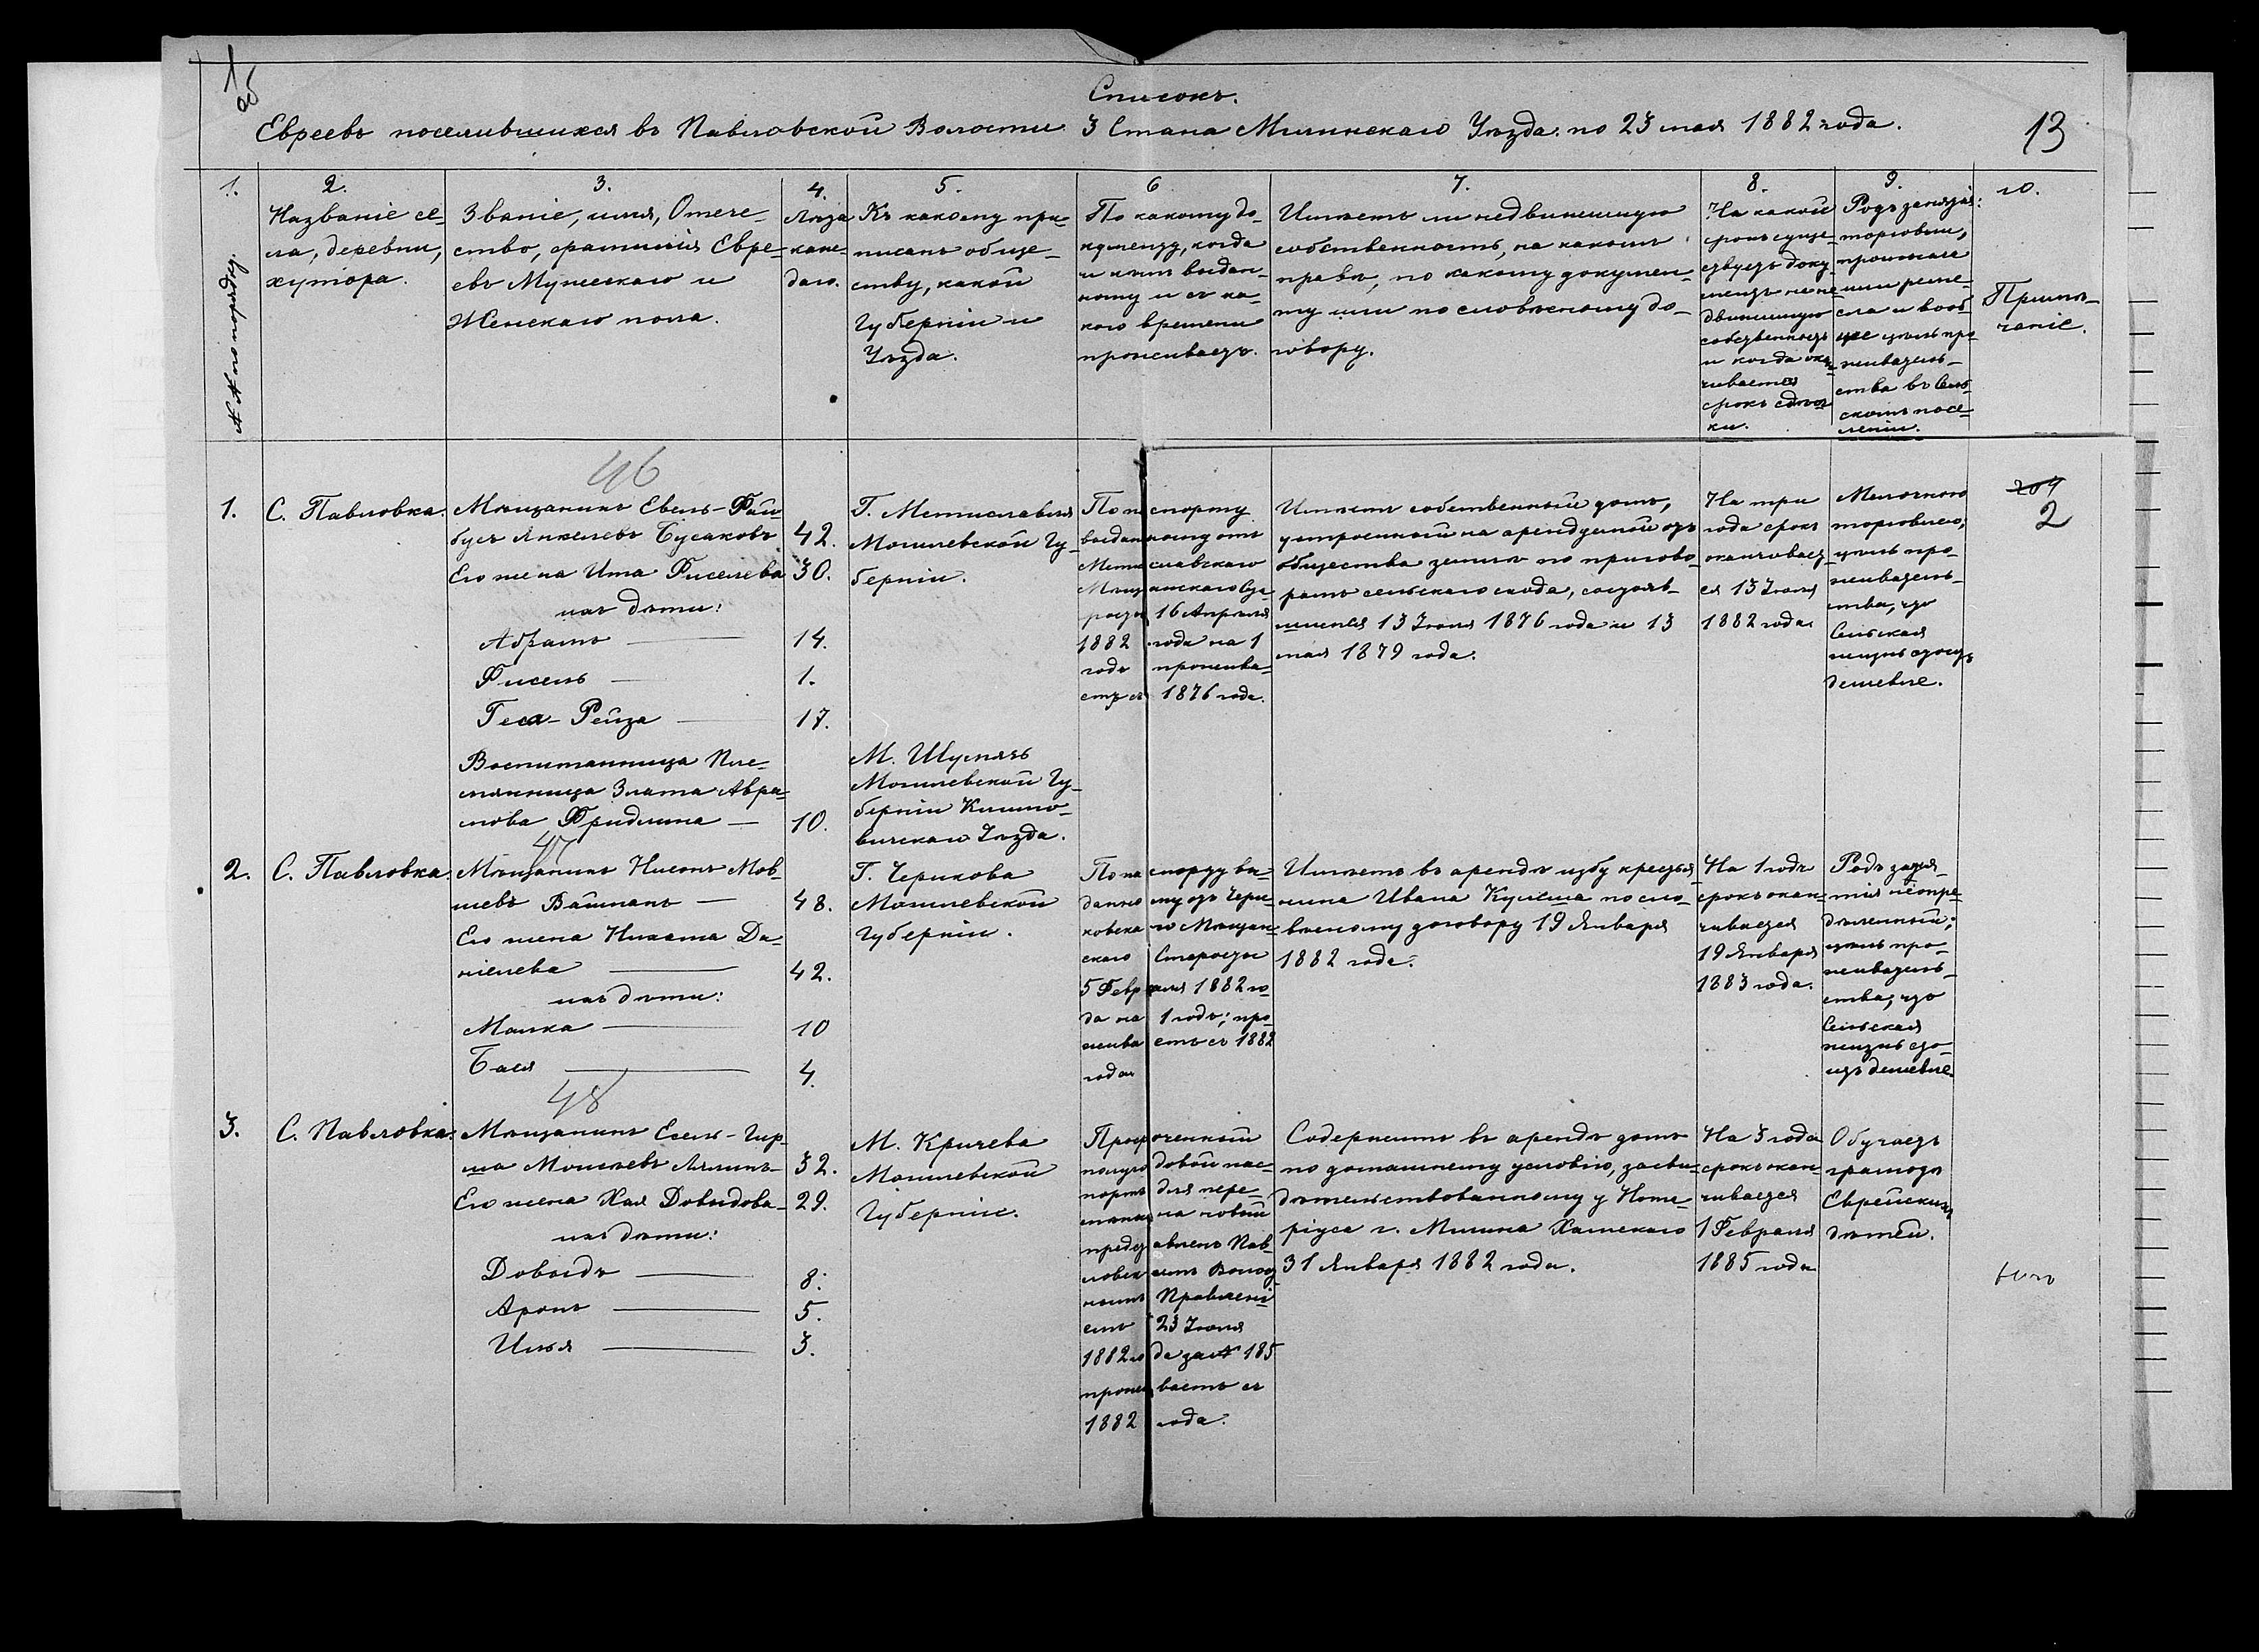 1
об
Списокъ.
Евреевъ поселившихся въ Павловской Волости 3 Стана Мглинскаго Уѣзда по 23 мая 1882 года.
13
1.
№№ по порядку.
2.
Названіе се-
ла, деревни,
хутора.
3.
Званіе, имя, Отече-
ство, фамилія Евре-
евъ Мужескаго и
Женскаго пола.
4.
Лѣта
каж-
даго.
5.
Къ какому при-
писанъ обще-
ству, какой
Губерніи и
Уѣзда.
6
По какому до-
кументу, когда
и кѣмъ выдан-
ному и съ ка-
кого времени
проживаетъ.
7.
Имѣетъ ли недвижимую
собственность, на какомъ
правѣ, по какому докумен-
ту или по словѣсному до-
говору.
8.
На какой
срокъ суще-
ствуетъ доку-
ментъ на не-
движимую
собственность
и когда окан-
чивается
срокъ сдѣл-
ки.
9.
Родъ занятія:
торговли,
промысла
или реме-
сла и вооб-
ще цѣль про-
живатель-
ства въ Сель-
скомъ посе-
леніи.
10.
Примѣ-
чаніе.
46
1.
С. Павловка.
Мѣщанинъ Евель-Фай-
бусъ Янкелевъ Бусаковъ 42.
Его жена Ита Фиселева 30.
ихъ дѣти:
Абрамъ 14.
Фисель 1.
Геся-Рейза 17.
Воспитанница Пле-
мянница Злата Абра-
мова Фридлина 10.
Г. Мстиславля
Могилевской Гу-
берніи.
М. Шумячъ
Могилевской Гу-
берніи Климо-
вичскаго Уѣзда.
По паспорту
выданному отъ
Мстиславскаго
Мѣщанскаго Ста-
росты 16 Апрѣля
1882 года на 1
годъ прожива-
етъ съ 1876 года.
Имѣетъ собственный домъ,
устроенный на арендуемой отъ
общества землѣ по пригово-
рамъ сельскаго схода, состояв-
шимся 13 Іюня 1876 года и 13
мая 1879 года.
На три
года срокъ
оканчивает-
ся 13 Іюня
1882 года.
Мелочною
торговлею,
цѣль про-
живатель-
ства, что
Сельская
жизнь стоитъ
дешевле.
2
47
2.
С. Павловка.
Мѣщанинъ Нисонъ Мов-
шевъ Вайманъ 48.
Его жена Нихама Да-
ніелева 42.
ихъ дѣти:
Малка 10
Бася 4.
Г. Черикова
Могилевской
Губерніи.
По паспорту вы-
данному отъ Чери-
ковскаго Мѣщан-
скаго Старосты
5 Февраля 1882 го-
да на 1 годъ; про-
живаетъ съ 1882
года
Имѣетъ въ арендѣ избу крестья-
нина Ивана Кулеша по сло-
вѣсному договору 19 Января
1882 года.
На 1 годъ
срокъ окан-
чивается
19 Января
1883 года.
Родъ заня-
тія неопре-
дѣленный;
цѣль про-
живатель-
ства, что
Сельская
жизнь сто-
итъ дешевле.
48
3.
С. Павловка.
Мѣщанинъ Есель-Гир-
ша Моисеевъ Лялинъ 32.
Его жена Хая Довыдова 29.
ихъ дѣти:
Довыдъ 8.
Аронъ 5.
Илья 3.
М. Кричева
Могилевской
Губерніи.
Просроченный
полугодовой пас-
портъ для пере-
мѣны на новый
представленъ Пав-
ловскимъ Волост-
нымъ Правлені-
емъ 23 Іюня
1882 года за № 185
проживаетъ съ
1882 года.
Содержитъ въ арендѣ домъ
по домашнему условію, засви-
дѣтельствованному у Нота-
ріуса г. Мглина Хатскаго
31 Января 1882 года.
На 3 года
срокъ окан-
чивается
1 Февраля
1885 года
Обучаетъ
грамотѣ
Еврейскихъ
дѣтей.